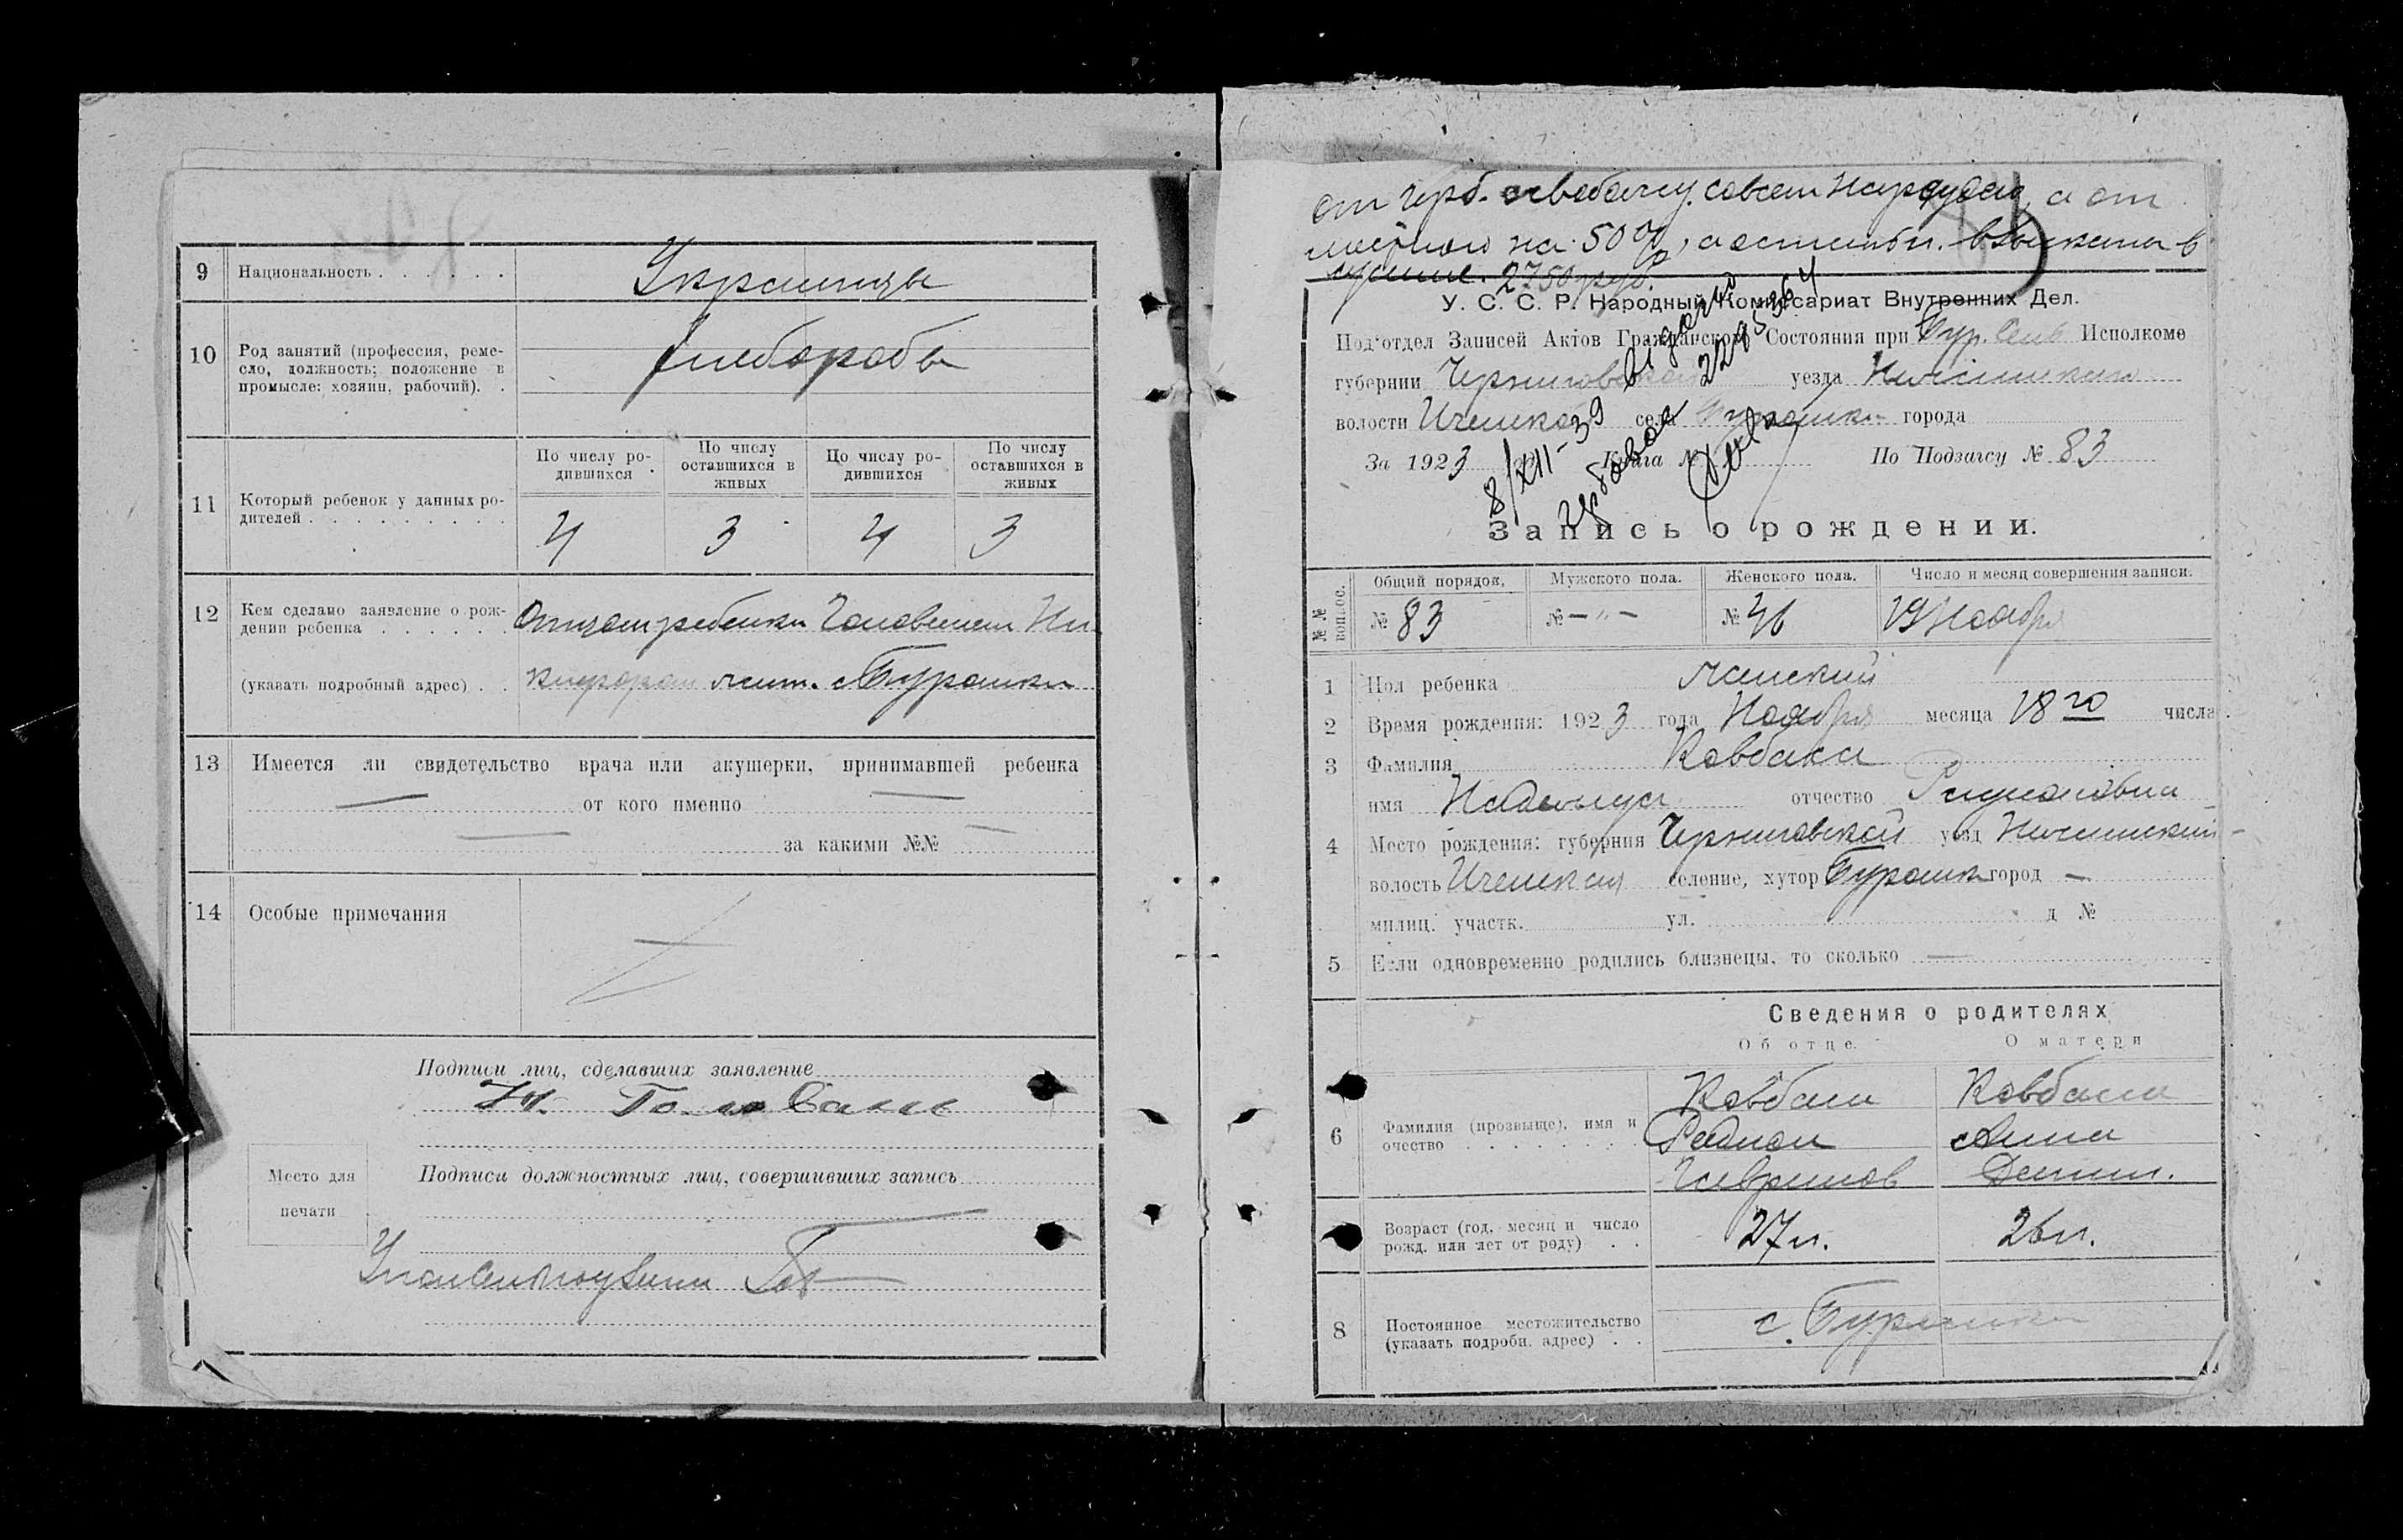 9 Национальность . . . . . . Украинцы
10 Род занятий (профессия, реме-
сло, должность; положение в
промысле: хозяин, рабочий). . хлеборобы
По числу ро-
дившихся
По числу
оставшихся в
живых
По числу ро-
дившихся
По числу
оставшихся в
живых
11 Который ребенок у данных ро-
дителей . . . . . . . . . .
4 3 4 3
12 Кем сделано заявление о рож-
дении ребенка . . . . . . Отцом ребенка Головенем Ни
(указать подробный адрес) . . кифором жит. с Буромки
13 Имеется ли свидетельство врача или акушерки, принимавшей ребенка
— от кого именно —
— за какими №№ —
14 Особые примечания
Подписи лиц, сделавших заявление
Н. Головань
Место для
печати
Подписи должностных лиц, совершивших запись
от герб. совсем а от
местного на 50%, а взыскать в
сумме 2750 руб.
У. С. С. Р. Народный Комиссариат Внутренних Дел.
Под'отдел Записей Актов Гражданского Состояния при Бур. Сель Исполкоме
губернии Черниговской уезда Нежинского
волости Иченской села Буромки города
За 1923 Книга № По Подзагсу № 83
Выдано
8/XII-39
Запись о рождении.
№ №
вопрос.
Общий порядок. Мужского пола. Женского пола. Число и месяц совершения записи.
№ 83 № — " — № 46 19 Ноября
1 Пол ребенка женский
2 Время рождения: 1923 года Ноября месяца 18го числа
3 Фамилия Ковбаса
имя Надежда отчество Радионовна
4 Место рождения: губерния Черниговской уезд Нежинский
волость Иченская селение, хутор Буромка город —
милиц. участк. ул. д №
5 Если одновременно родились близнецы, то сколько —
Сведения о родителях
Об отце. О матери
6 Фамилия (прозвыще), имя и
очество . . . . . . . .
Ковбаса
Радион
Гаврилов
Ковбаса
Анна
Демин.
Возраст (год, месяц и число
рожд. или лет от роду) . .
27 л. 26 л.
8 Постоянное местожительство
(указать подробн. адрес) . .
с. Буромка